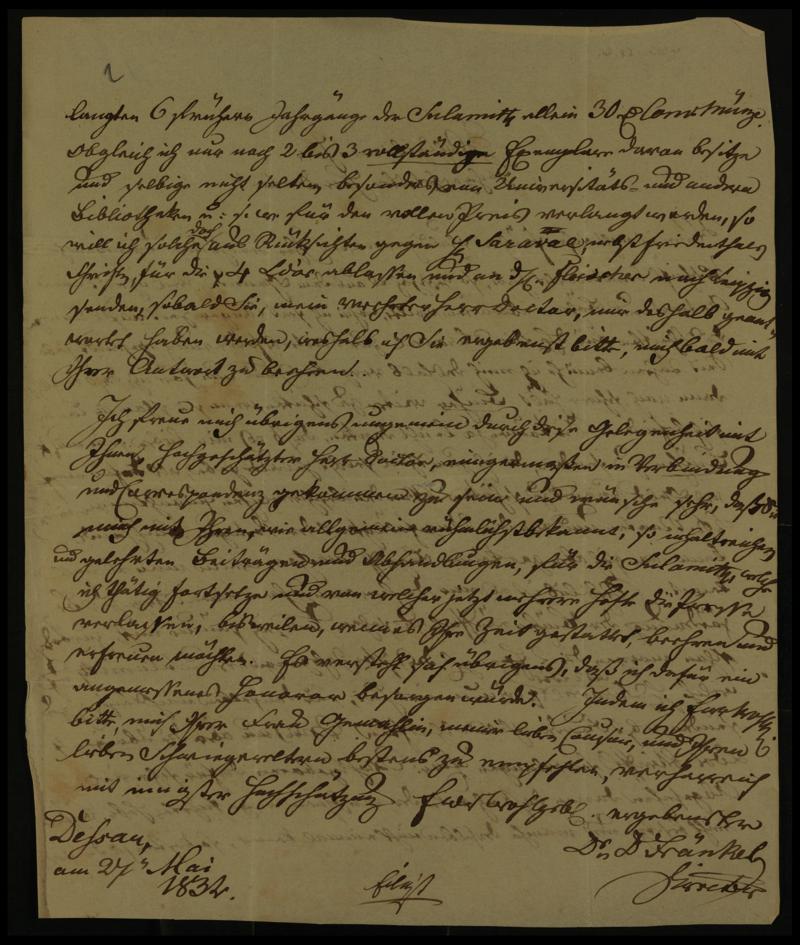 2
langten 6 frühern Jahrgänge der Sulamith allein 30 Convntmünze.
Obgleich ich nur noch 2 bis 3 vollständige Exemplare davon besitze
und selbige nicht selten, besonders von Universitäts- und andern
Bibliotheken u: s. w. für den vollen Preis verlangt werden, so
will ich solche doch aus Rücksichten gegen H Saraval, nebst Friedenthals
Schrift, für die 4 Ldor ablassen und an H. Fleischer nach Leipzig
senden, sobald Sie, mein verehrter Herr Doctor, mir deshalb geant-
wortet haben werden, weshalb ich Sie ergebenst bitte, mich bald mit
Ihrer Antwort zu beehren.
Ich freue mich übrigens ungemein durch diese Gelegenheit mit
Ihnen, hochgeschätzter Herr Doctor, einigermaßen in Verbindung
und Correspondenz gekommen zu sein und wünsche sehr, daß Sie
mich mit Ihren, wie allgemein rühmlichst bekannt, so inhaltreichen
und gelehrten Beiträgen und Abhandlungen, für die Sulamith, welche
ich thätig fortsetze und von welcher jetzt mehrere Hefte die Presse
verlassen, bisweilen, wenn es Ihre Zeit gestattet, beehren und
erfreuen möchten. Es versteht sich übrigens, daß ich dafür ein
angemessenes Honorar besorgen würde. Indem ich Ew Wohlg.
bitte, mich Ihrer Frau Gemahlin, meiner lieben Cousine, und Ihren
lieben Schwiegereltern bestens zu empfehlen, verharre ich
mit innigster Hochschätzung Ew Wohlgeb. ergebenster
Dessau, Dr. D Fränkel
am 27n Mai Director
1832. Eiligst